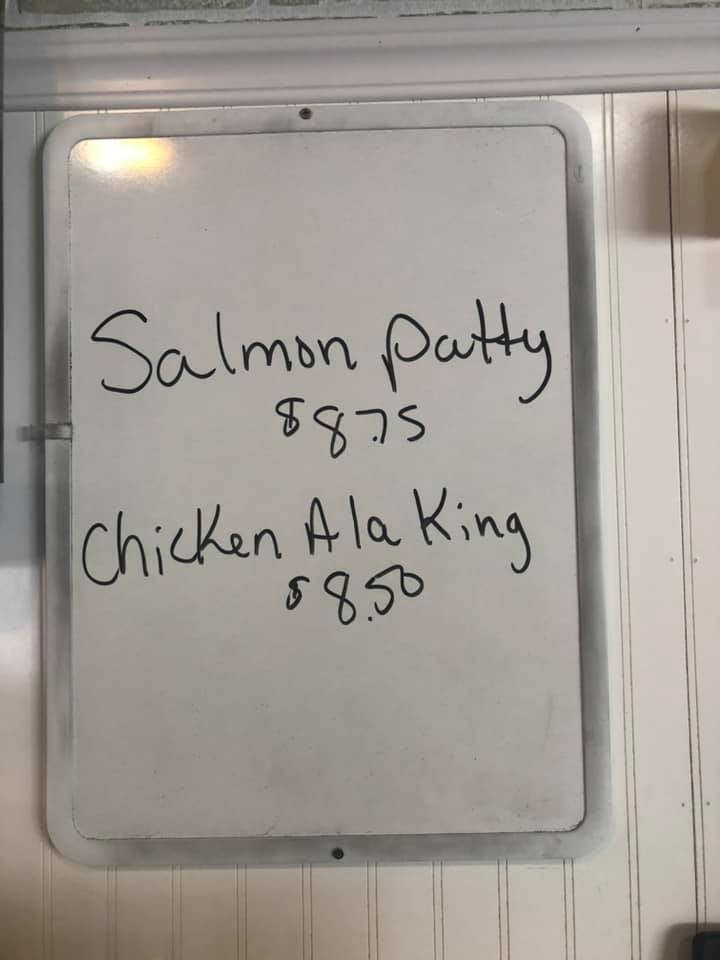 Salmon patty
$8.75
Chicken Ala King
$8.50